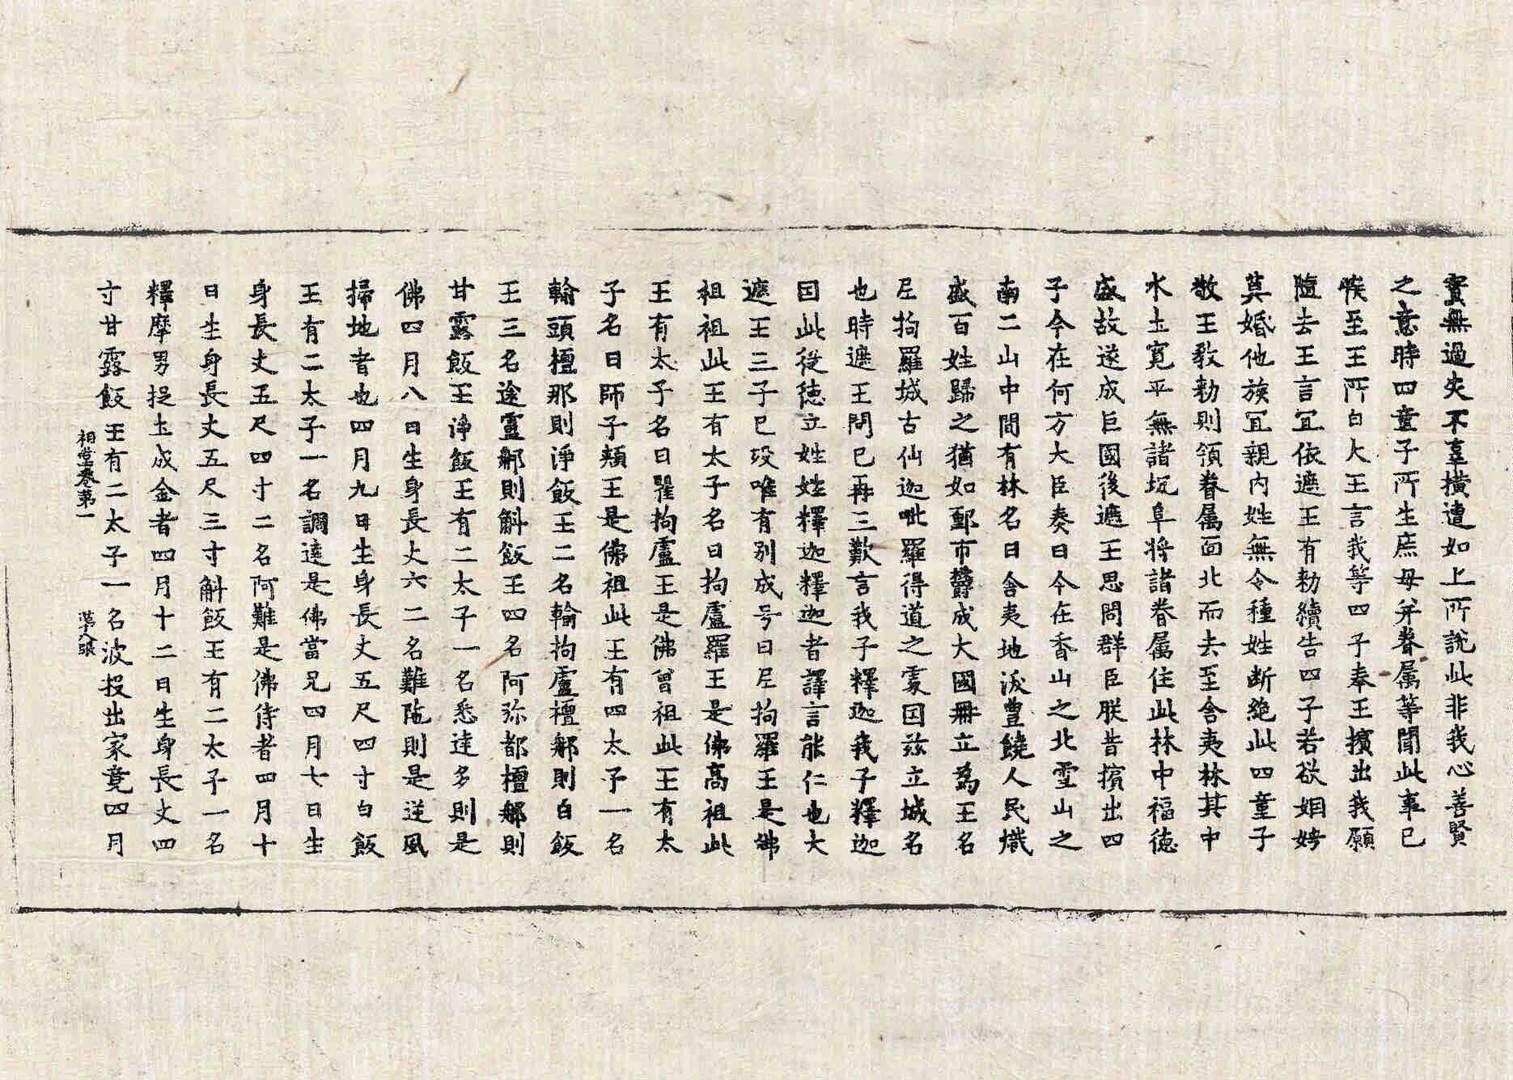 實無過失不辜擯遣如上所說此非我心善賢
之意時四童子所生庶母并眷属等聞此事已
候至王所白大王言我等四子奉王擯出我願
隨去王言冝依遮王有勑續告四子若欲婣娉
莫婚他族冝親內姓無令種姓断絶此四童子
敬王教勑則領眷属面北而去至舍夷林其中
水土寛平無諸坑阜将諸眷属住此林中福徳
盛故遂成巨國後遮王思問群臣朕昔擯出四
子今在何方大臣奏曰今在香山之北雪山之
南二山中間有林名曰舍夷地沃豊饒人民熾
盛百姓歸之猶如鄽市欝成大國冊立爲王名
尼拘羅城古仙迦毗羅得道之處因玆立城名
也時遮王問已再三歎言我子釋迦我子釋迦
因此從徳立姓姓釋迦釋迦者譯言能仁也大
遮王三子已歿唯有別成号曰尼拘羅王是佛
祖祖此王有太子名曰拘盧羅王是佛高祖此
王有太子名曰瞿拘盧王是佛曾祖此王有太
子名曰師子頬王是佛祖此王有四太子一名
輸頭檀那則淨飯王二名輸拘盧檀那則白飯
王三名途靈那則斛飯王四名阿弥都檀那則
甘露飯王淨飯王有二太子一名悉達多則是
佛四月八日生身長丈六二名難陁則是逆風
掃地者也四月九日生身長丈五尺四寸白飯
王有二太子一名調達是佛當兄四月七日生
身長丈五尺四寸二名阿難是佛侍者四月十
日生身長丈五尺三寸斛飯王有二太子一名
釋摩男捉土成金者四月十二日生身長丈四
寸甘露飯王有二太子一名波投出家竟四月
祖堂卷第一　第八張